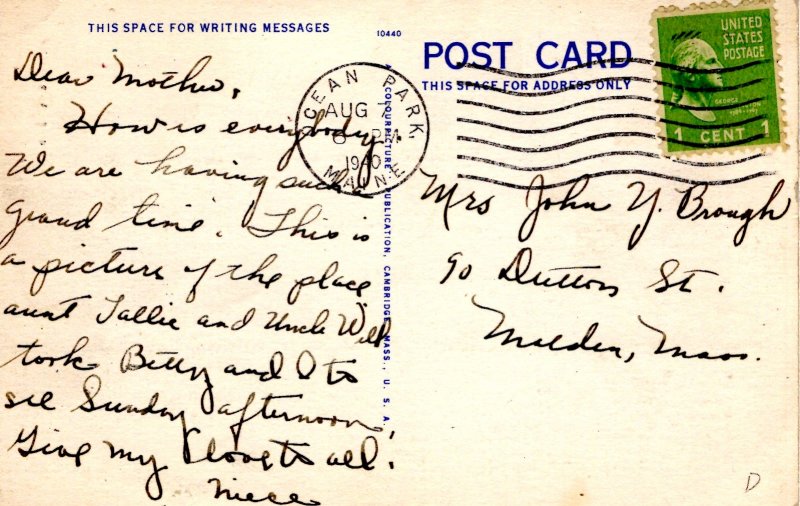 THIS SPACE FOR WRITING MESSAGES
10440
Dear Mother,
How is everybody.
We are having such
grand time. This is
a picture of the place
aunt Tallie and Uncle Will
took Betty and I to
see Sunday afternoon,
Give my love to all.
A COLOURPICTURE PUBLICATION, CAMBRIDGE, MASS., U. S. A.
OCEAN PARK,
AUG
PM
1940
MAINE
POST CARD
THIS SPACE FOR ADDRESS ONLY
UNITED
STATES
POSTAGE
GEORGE
WASHINGTON
1 CENT 1
Mrs John Y. Brough
90 Dutton St.
Malden, Mass.
D